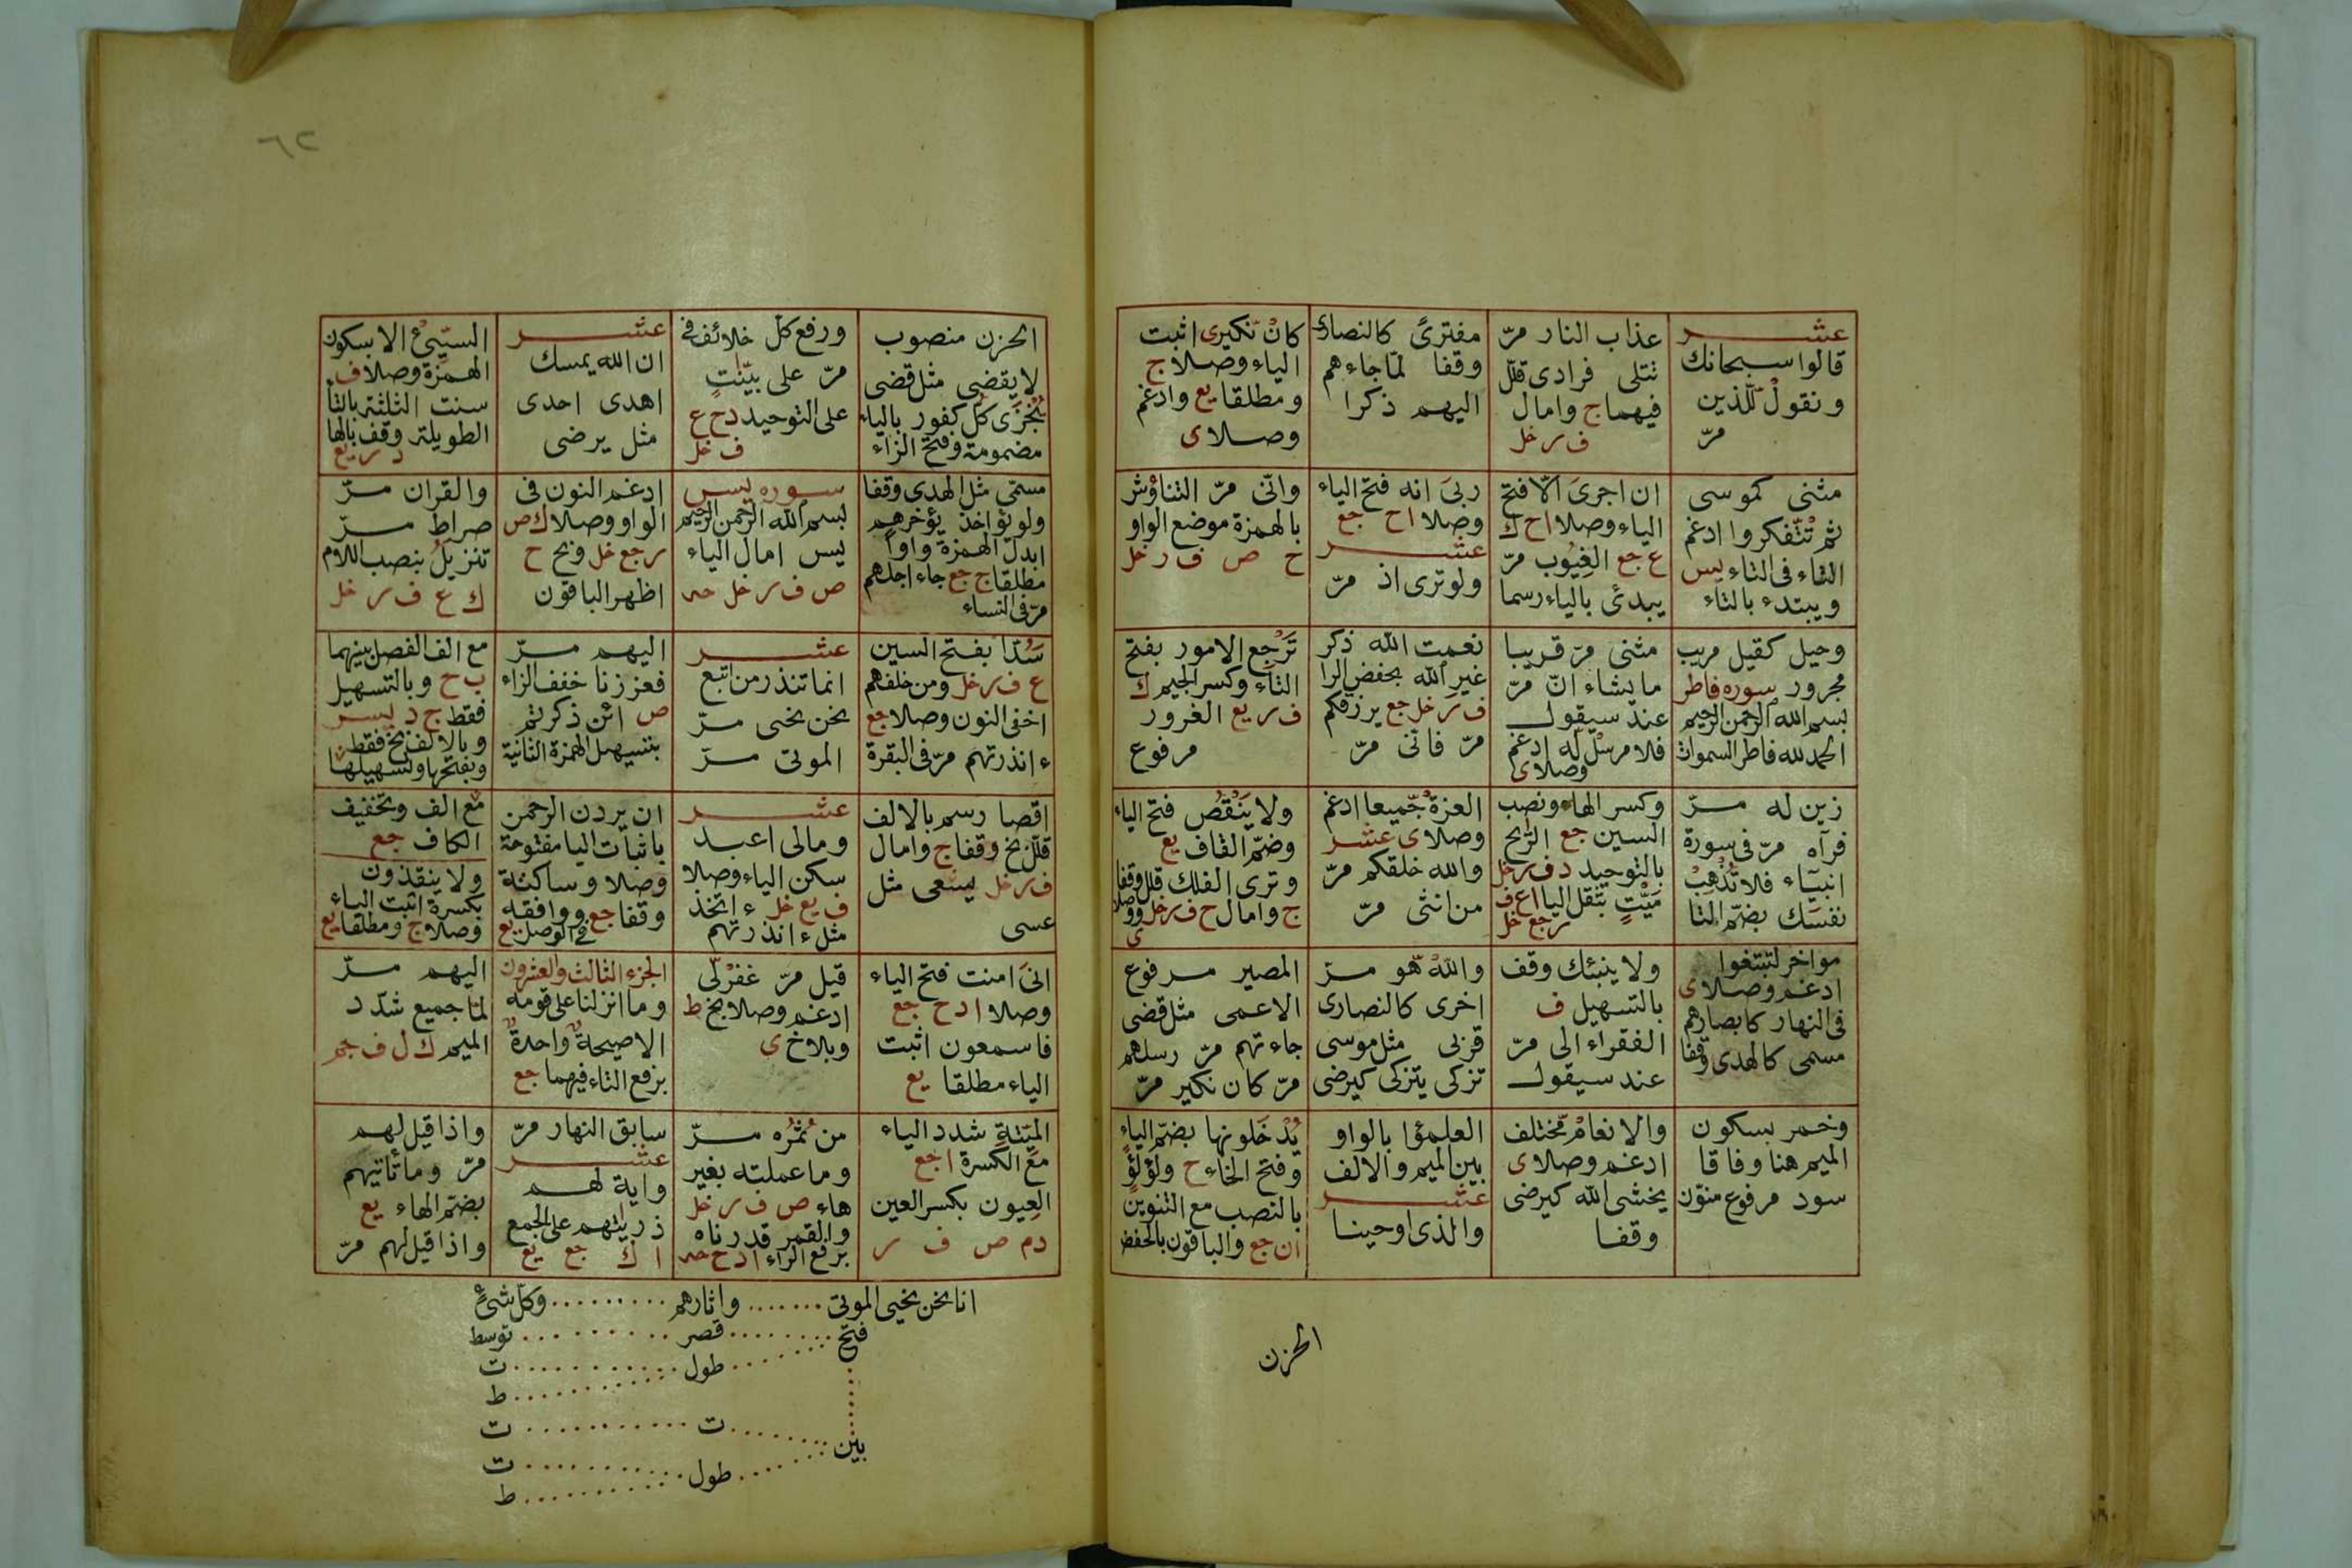 عشـــر
قالوا سبحانك
ونقول للّذين
مرّ
عذاب النار مرّ
تتلى فرادى قلّل
فيهما ج وامال
ف ر خل
مفترىً كالنصارى
وقفا لمّا جاءهم
اليهم ذكرا
كان نكيرى اثبت
الياء وصلا ج
ومطلقا يع وادغم
وصلا ى
مثنى كموسى
ثم تّتفكروا ادغم
التاء فى التاء يس
ويبتدء بالتاء
ان اجرى الّا فتح
الياء وصلا ا ح ك
ع جع الغيوب مرّ
يبدئ بالياء رسما
ربى انه فتح الياء
وصلا ا ح جع
عشـــر
ولو ترى اذ مرّ
وانّى مرّ التناؤش
بالهمزة موضع الواو
ح ص ف ر خل
وحيل كقيل مريب
مجرور سوره فاطر
بسم الله الرحمن الرحيم
الحمد لله فاطر السموات
مثنى مرّ قريبا
ما يشاء انّ مرّ
عند سيقول
فلا مرسل له ادغم
وصلا ى
نعمت الله ذكر
غير الله بخفض الرا
ف ر خل جع يرزقكم
مرّ فانّى مرّ
ترجع الامور بفتح
التاء وكسر الجيم ك
ف ر يع الغرور
مرفوع
زين له مرّ
فرآه مرّ فى سورة
انبياء فلا تُذهِبْ
نفسَك بضمّ التا
وكسر الهاء ونصب
السين جع الرّيح
بالتوحيد د ف ر خل
ميّتٍ بثقل اليا ا ع ف
ر جع خل
العزة جّميعا ادغم
وصلا ى عشـــر
والله خلقكم مرّ
من انثى مرّ
ولا يَنْقُص فتح الياء
وضمّ القاف يع
وترى الفلك قلل وقفا
ج وامال ح ف ر خل ووصلا
ى
مواخر لتبتغوا
ادغم وصلا ى
فى النهار كابصارهم
مسمى كالهدى وقفا
ولا ينبئك وقف
بالتسهيل ف
الفقراء الى مرّ
عند سيقول
والله هّو مرّ
اخرى كالنصارى
قربى مثل موسى
تزكى يتزكى كيرضى
المصير مرفوع
الاعمى مثل قضى
جاءتهم مرّ رسلهم
مرّ كان نكير مرّ
وخمر بسكون
الميم هنا وفاقا
سود مرفوع منوّن
والانعام مّختلف
ادغم وصلا ى
يخشى الله كيرضى
وقفا
العلمؤا بالواو
بين الميم والالف
عشـــر
والذى اوحينا
يُدْخَلونها بضمّ الياء
وفتح الخاء ح ولؤلؤً
بالنصب مع التنوين
ا ن جع والباقون بالخفض
الحزن
الحزن منصوب
لا يقضى مثل قضى
يُجْزَى كلُ كفور بالياء
مضمومة وفتح الزاء
ورفع كلّ خلائف فى
مرّ على بيّنتٍ
على التوحيد د ح ع
ف خل
عشـــر
ان الله يمسك
اهدى احدى
مثل يرضى
السيّئْ الا بسكون
الهمزة وصلا ف
سنت الثلثة بالتا
الطويلة وقف بالها
د ر يع
مسمّى مثل الهدى وقفا
ولو يؤاخذ يؤخرهم
ابدل الهمزة واوا
مطلقا ج جع جاء اجلهم
مرّ فى النساء
سوره يس
بسم الله الرحمن الرحيم
يس امال الياء
ص ف ر خل حه
ادغم النون فى
الواو وصلا ك ص
ر جع خل وبخ ح
اظهر الباقون
والقران مرّ
صراط مرّ
تنزيلَ بنصب اللام
ك ع ف ر خل
سَدّا بفتح السين
ع ف ر خل ومن خلفهم
اخفى النون وصلا جع
ءانذرتهم مرّ فى البقرة
عشـــر
انما تنذر من اتبع
نحن نحيى مرّ
الموتى مرّ
اليهم مرّ
فعززنا خفف الزاء
ص ائن ذكرتم
بتسهيل الهمزة الثانية
مع الف الفصل بينهما
ب ح وبالتسهيل
فقط ج د يس
وبالالف بخ فقط
وبفتحها وتسهيلها
اقصا رسم بالالف
قلّل بخ وقفا ج وامال
ف ر خل يسعى مثل
عسى
عشـــر
ومالى اعبد
سكن الياء وصلا
ف يع خل ءاتخذ
مثل ءانذرتهم
ان يردن الرحمن
باثبات اليا مفتوحة
وصلا وساكنة
وقفا جع ووافقه
فى الوصل يع
مع الف وتخفيف
الكاف جع
ولا ينقذون
بكسرة اثبت الياء
وصلا ج ومطلقا يع
انىَ امنت فتح الياء
وصلا ا د ح جع
فاسمعون اثبت
الياء مطلقا يع
قيل مرّ غفر لّى
ادغم وصلا بخ ط
وبلا خ ى
الجزء الثالث والعشرون
وما انزلنا على قومه
الا صيحةٌ واحدةٌ
برفع التاء فيهما جع
اليهم مرّ
لمّا جميع شدّد
الميم ك ل ف جم
الميّتة شدد الياء
مع الكسرة ا جع
العيون بكسر العين
د م ص ف ر
من ثمره مرّ
وما عملته بغير
هاء ص ف ر خل
والقمر قدرناه
برفع الراء ا د ح حه
سابق النهار مرّ
عشـــر
واية لهم
ذريّتهم على الجمع
ا ك جع يع
واذا قيل لهم
مرّ وما تأتيهم
بضمّ الهاء يع
واذا قيل لهم مرّ
انا نحن نحيى الموتى ....... واثارهم ......... وكلّ شئ
فتح ........ قصر ......... توسط
طول ........... ت
ط
بين ....... ت ........... ت
طول ........... ت
ط
٦٢